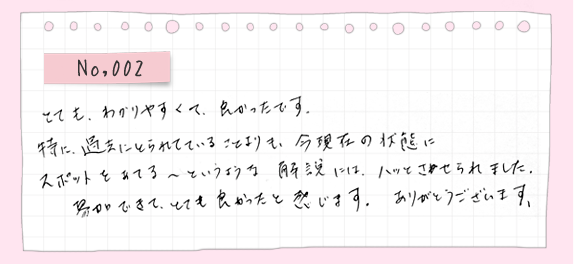 No,002
とても、わかりやすくて、良かったです。
特に、過去にとらわれていることよりも、今現在の状態に
スポットをあてる〜というような解説には、ハッとさせられました。
ができて、とても良かったと感じます。 ありがとうございます、